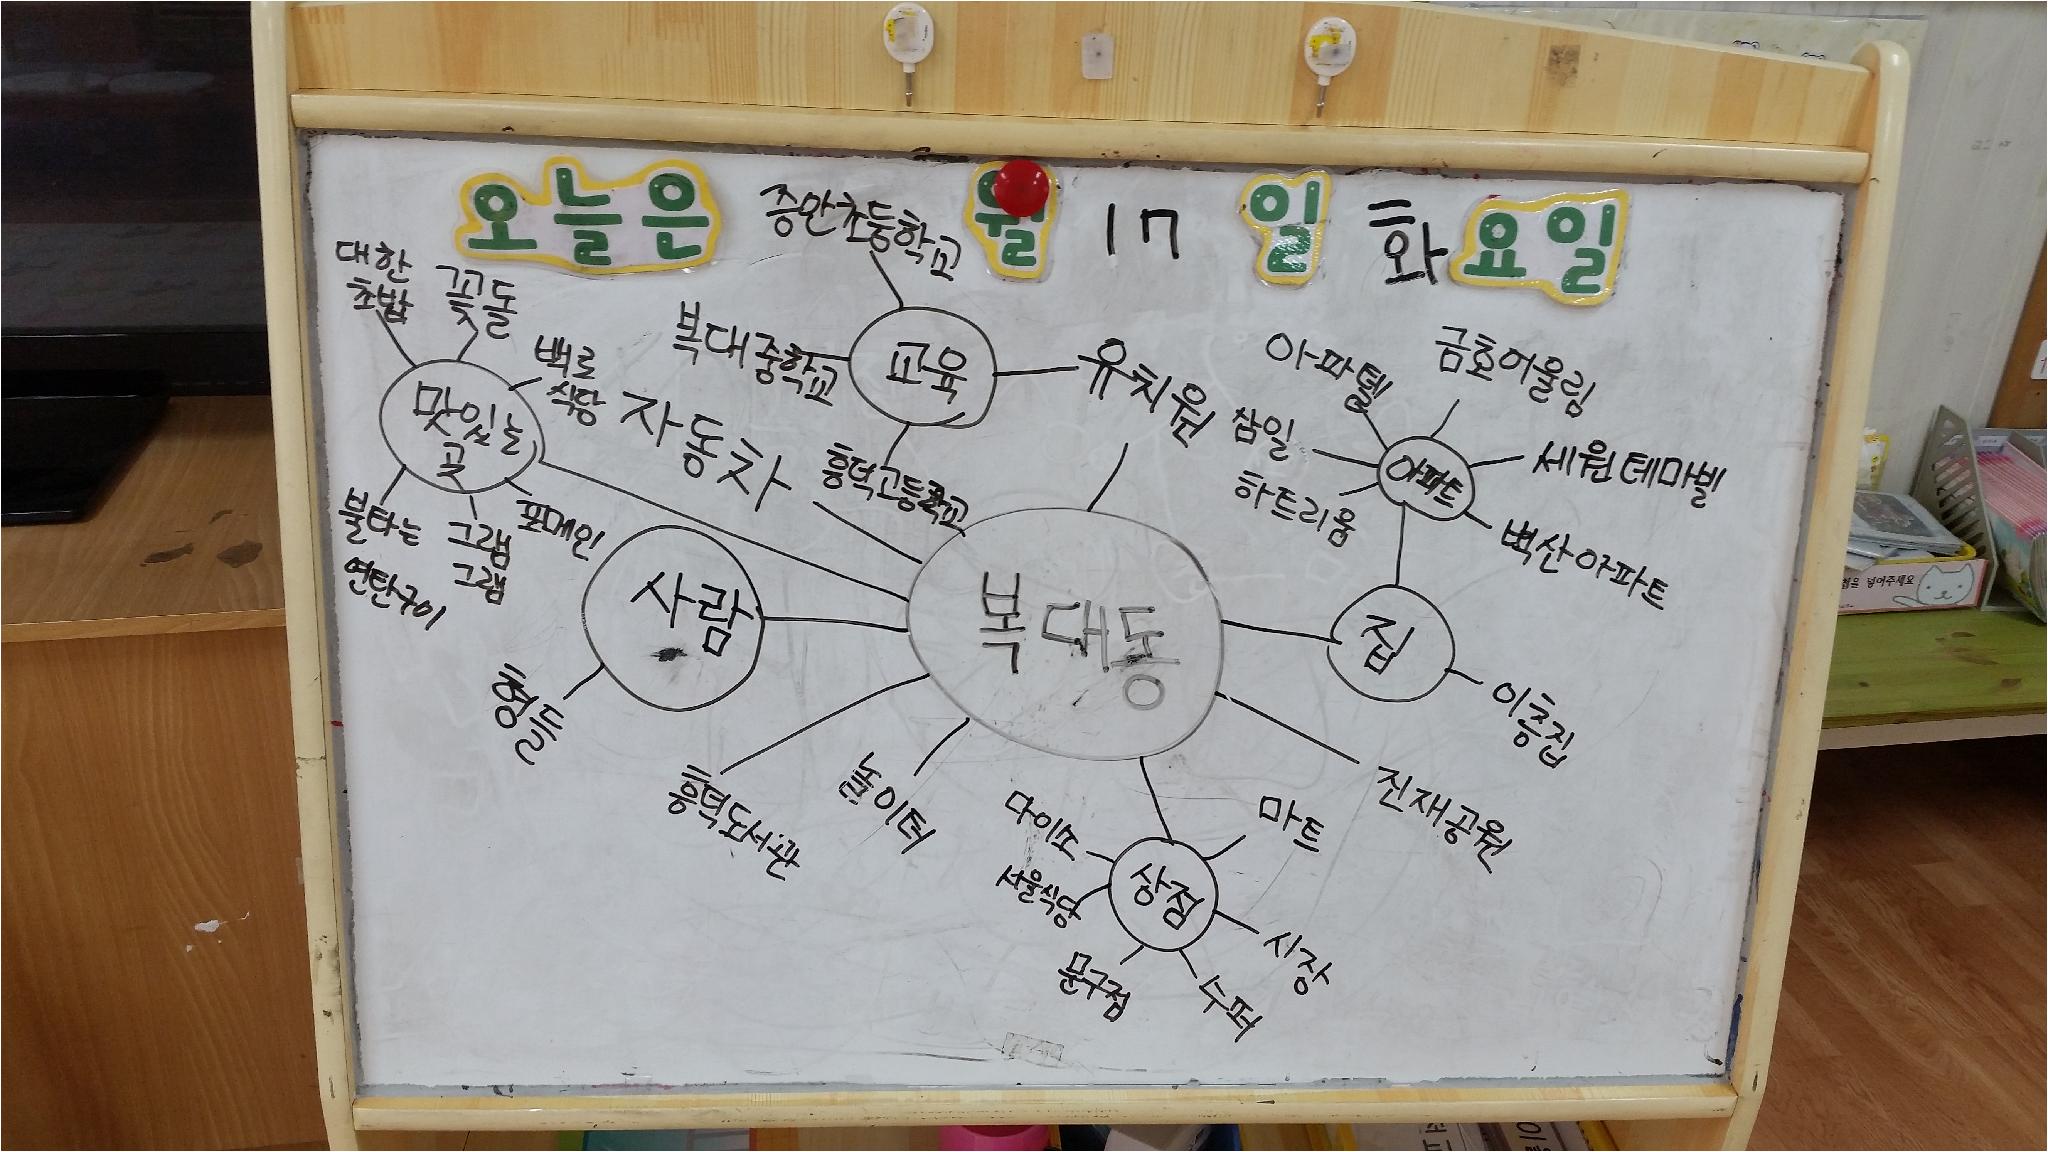 오늘은 월 17 일 화요일
중안초등학교
복대중학교
교육
유치원
흥덕고등학교
대한
초밥
꽃돌
벼로
식당
맛있는
곳
불타는
연탄구이
그램
그램
포메인
자동차
사람
형들
복대동
아파텔
금호어울림
삼일
하트리움
아파트
세원테마빌
벽산아파트
집
이층집
진재공원
흥덕도서관
놀이터
다이소
마트
서울식당
상점
시장
문구점
수퍼
넣어주세요